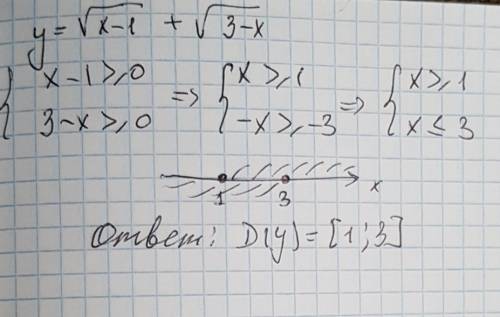 y = √x-1 + √3-x
{ x-1 ≥ 0 => { x ≥ 1 => { x ≥ 1
3-x ≥ 0 -x ≥ -3 x ≤ 3
1 3 x
Ответ: D(y) = [1; 3]